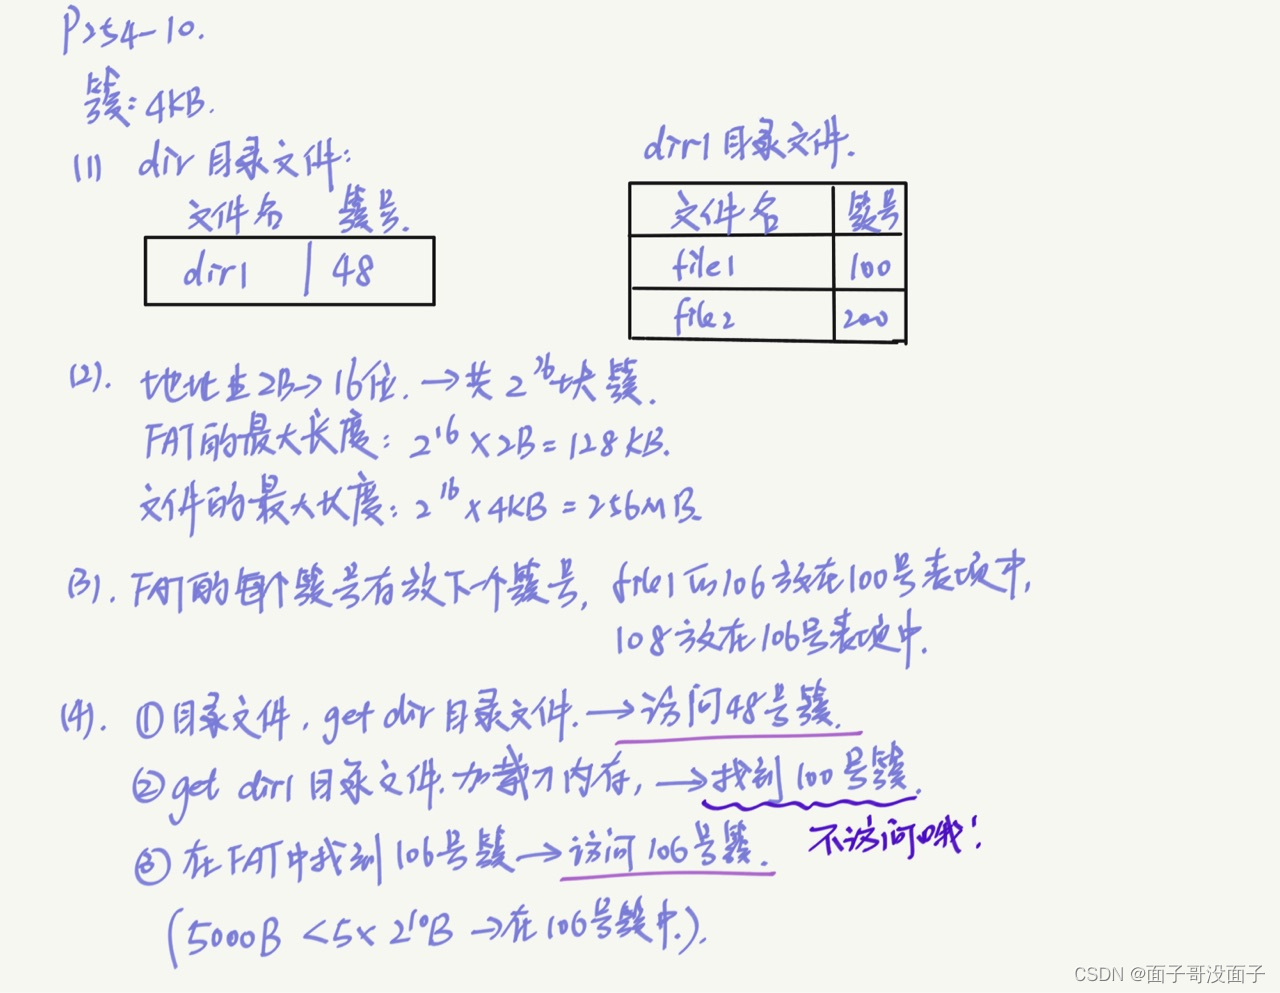 P254-10.
簇：4KB.
(1) dir 目录文件：
文件名 簇号.
dir1 | 48
dir1 目录文件.
文件名 簇号
file1 100
file2 200
(2). 地址占2B→16位. →共2^16块簇.
FAT的最大长度：2^16×2B=128KB.
文件的最大长度：2^16×4KB=256MB.
(3). FAT的每个簇号存放下个簇号,
file1的106放在100号表项中,
108放在106号表项中.
(4). ①目录文件. get dir 目录文件. →访问48号簇.
②get dir1目录文件.加载才内存, →找到100号簇.
不访问哦！
③在FAT中找到106号簇→访问106号簇.
(5000B <5×2^10B →在106号簇中.).
CSDN @面子哥没面子